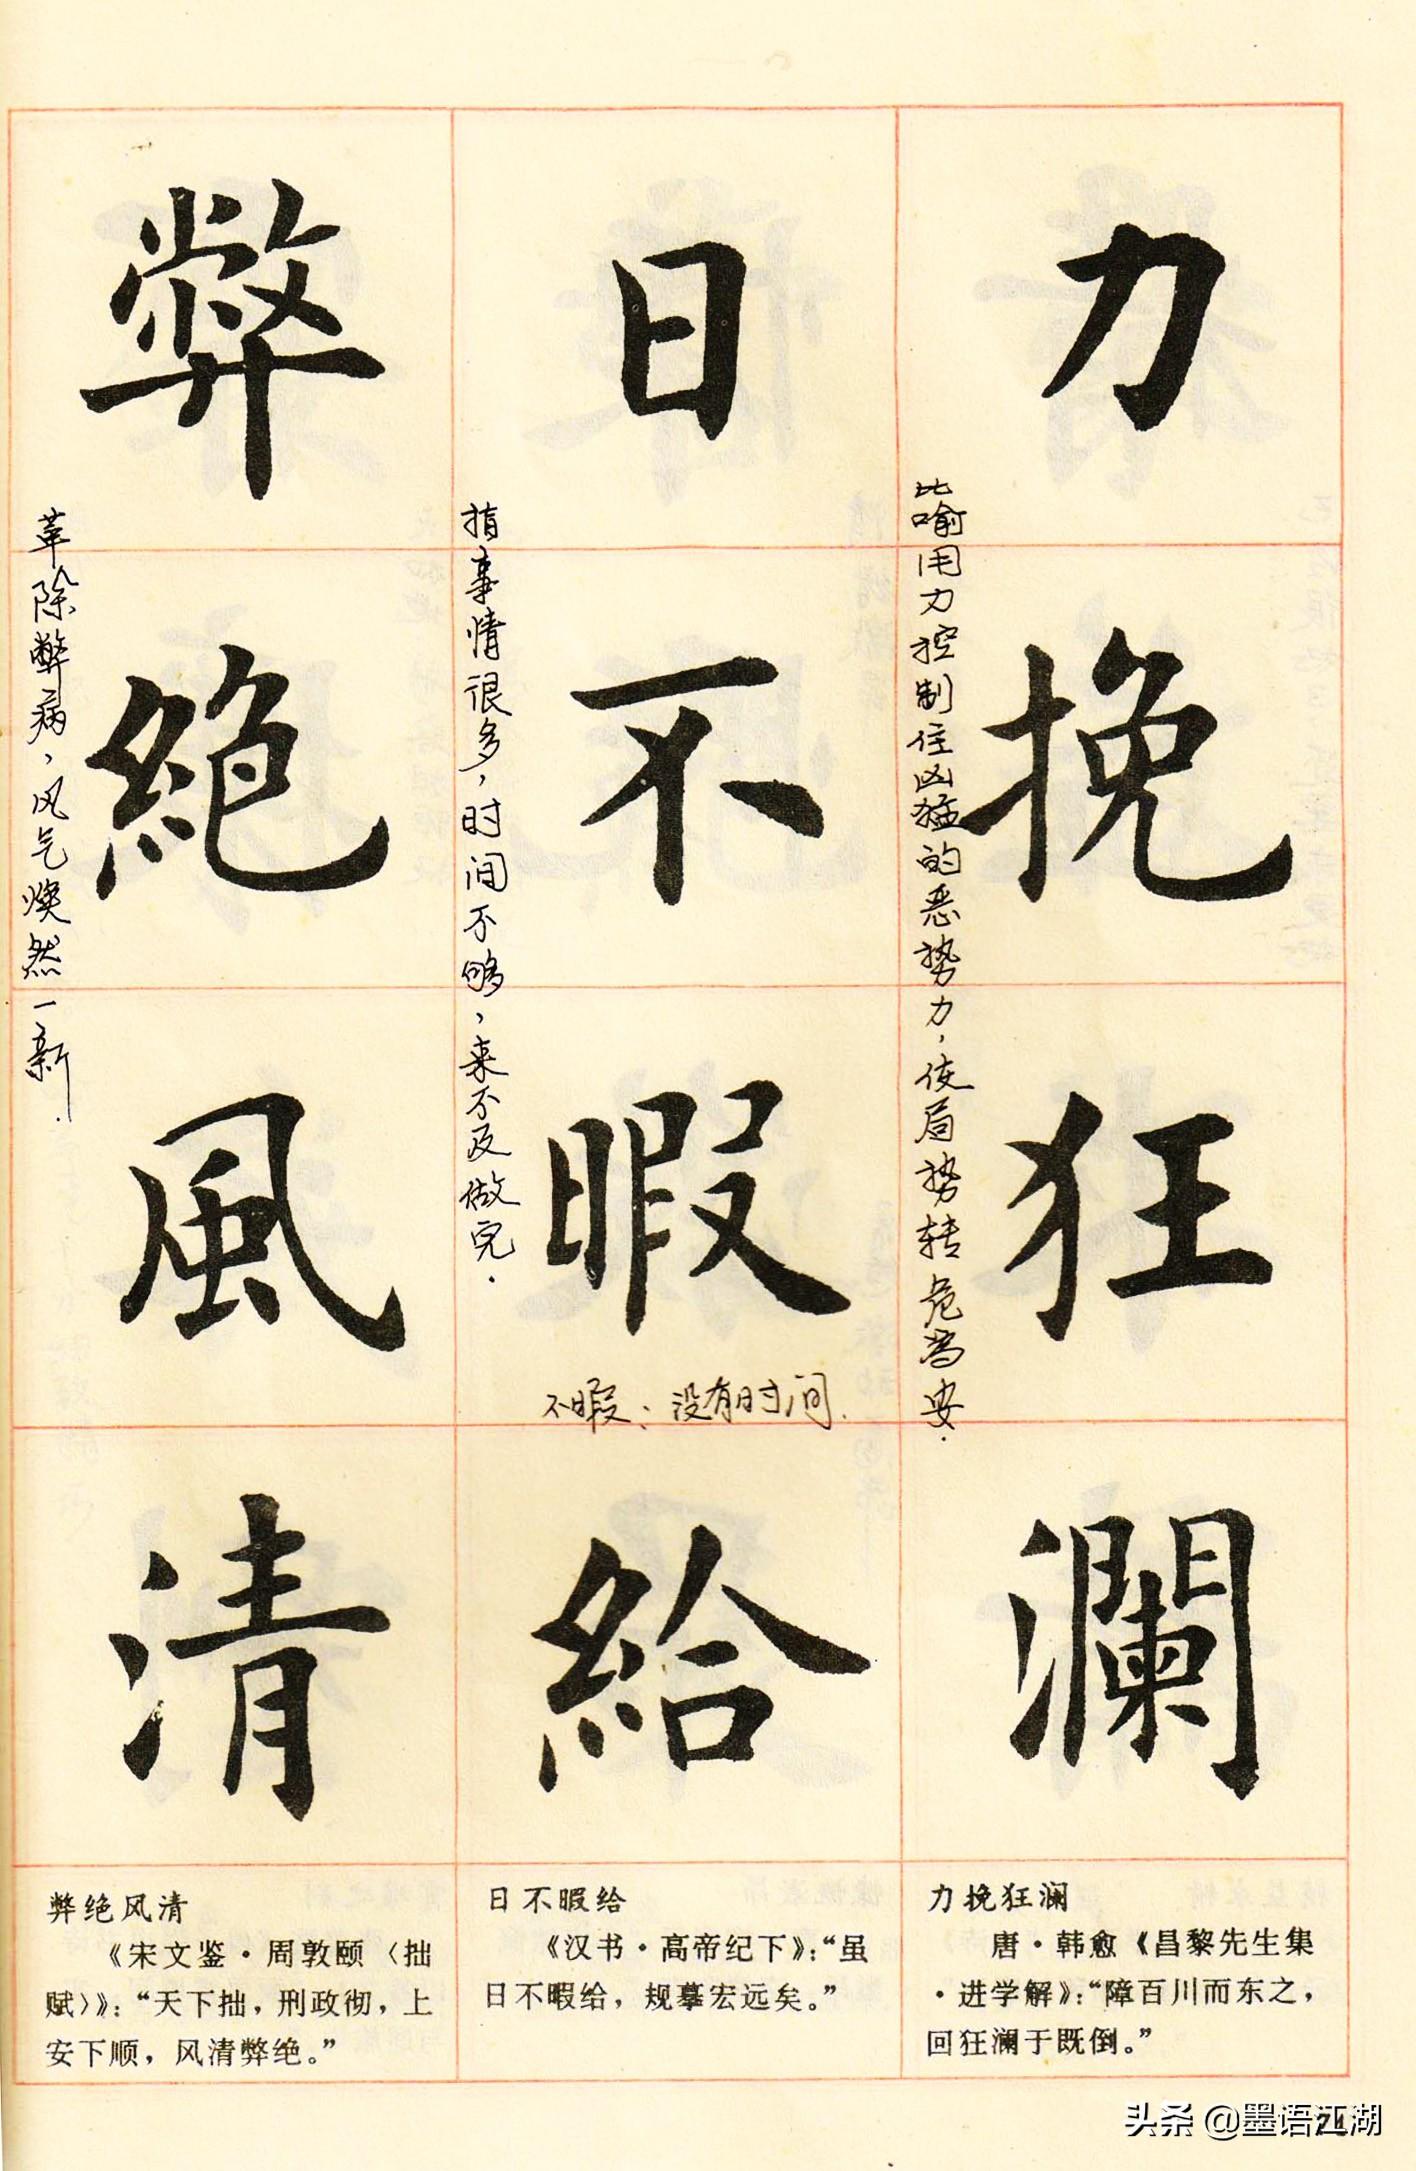 力挽狂瀾
比喻用力控制住凶猛的恶势力，使局势转危为安.
日不暇給
指事情很多，时间不够，来不及做完.
不暇：没有时间.
弊絕風清
革除弊病，风气焕然一新.
力挽狂澜
唐·韩愈《昌黎先生集
·进学解》：“障百川而东之，
回狂澜于既倒。”
日不暇给
《汉书·高帝纪下》：“虽
日不暇给，规摹宏远矣。”
弊绝风清
《宋文鉴·周敦颐〈拙
赋〉》：“天下拙，刑政彻，上
安下顺，风清弊绝。”
头条 @墨语江湖